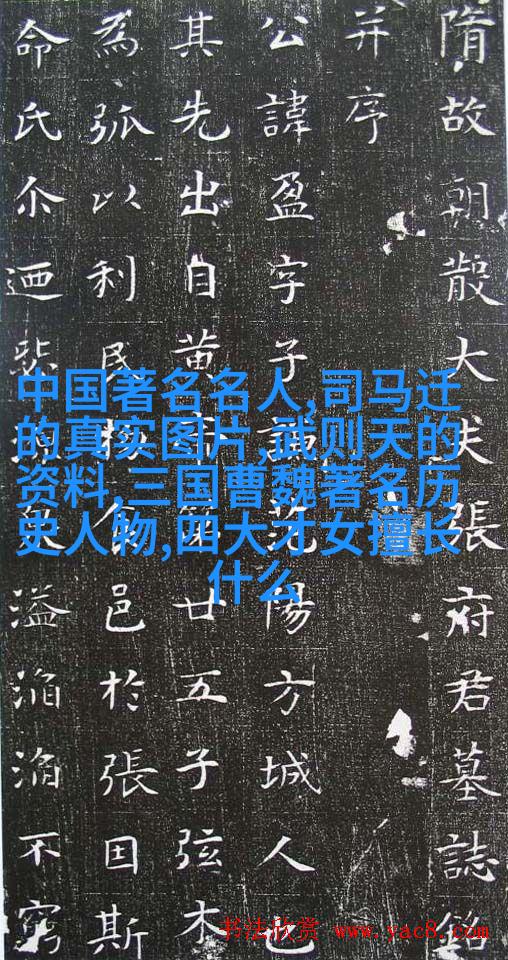 隋故朝散大夫張府君墓誌銘
并序
公諱盈字子范陽方城人也
其先出自黄第廿五子弦木
為弧以利民食邑於張因斯
命氏尒迺溢滔滔不窮
中国著名名人,司马迁
的真实图片,武则天的
资料,三国曹魏著名历
史人物,四大才女擅长
什么
书法欣赏 www.yac8.com